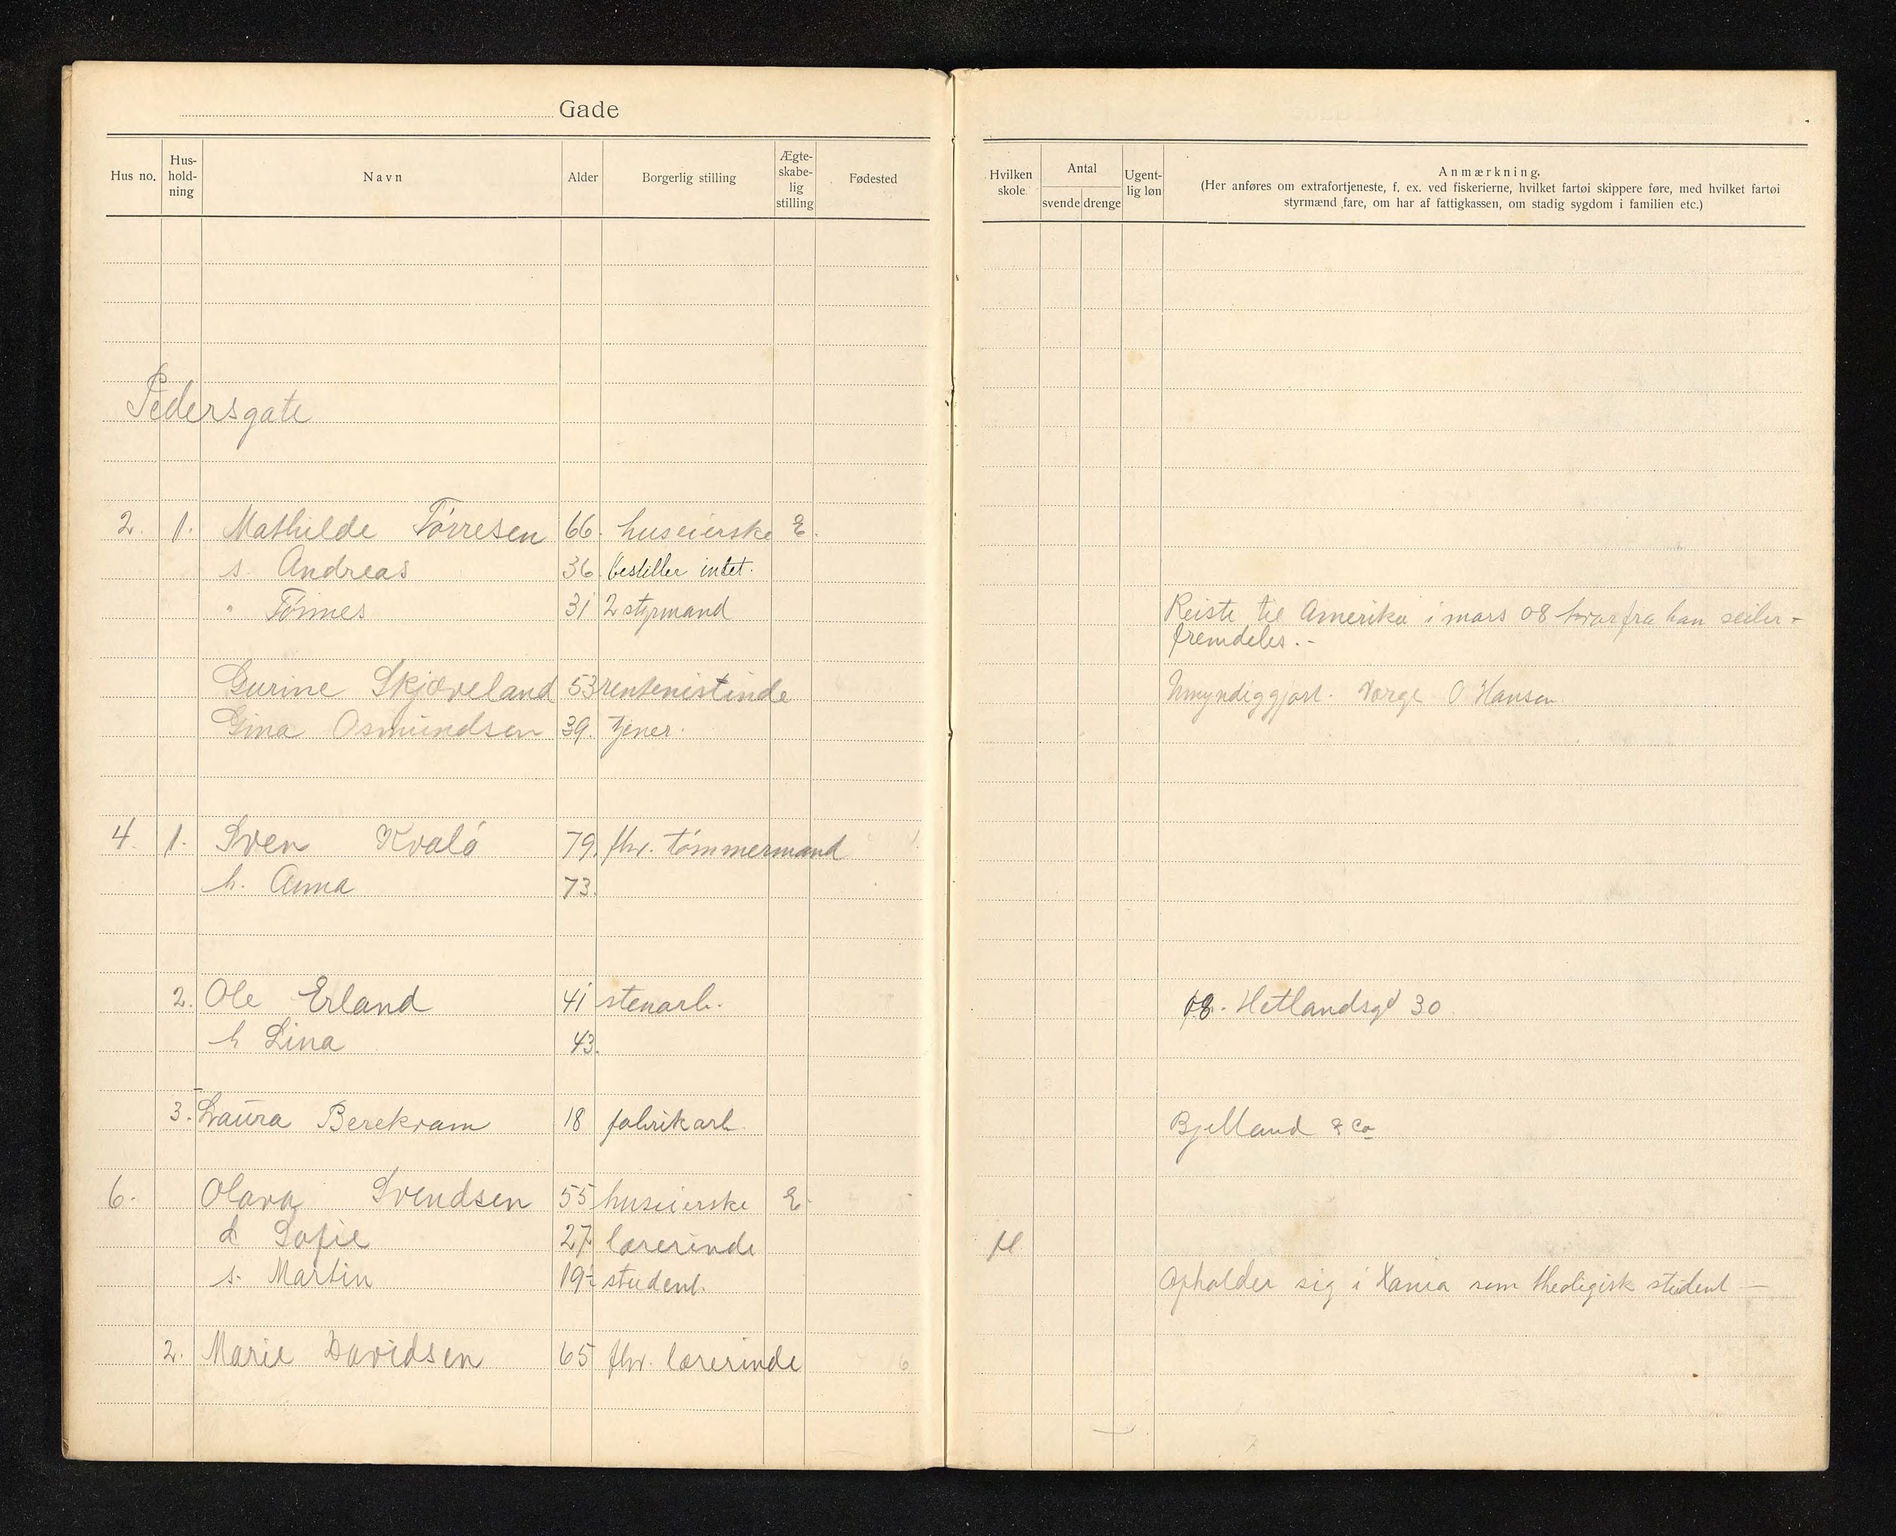 Gade
Hus no. Hus-hold-ning Navn Alder Borgerlig stilling Ægte-skabe-lig stilling Fødested
Hvilken skole. Antal svende drenge Ugent-lig løn Anmærkning.
(Her anføres om extrafortjeneste, f. ex. ved fiskerierne, hvilket fartøi skippere føre, med hvilket fartøi
styrmænd fare, om har af fattigkassen, om stadig sygdom i familien etc.)
Pedersgate
2. 1. Mathilde Tørresen 66. huseierske E.
s. Andreas 36. bestiller intet.
" Tønnes 31 2 styrmand Reiste til Amerika i mars 08 hvorfra han seiler -
fremdeles. -
Gurine Skjæveland 53 rentenistinde Umyndiggjort. Værge O Hansen
Gina Osmundsen 39. tjener.
4. 1. Sven Kvalø 79. fhv. tømmermand
h. Anna 73.
2. Ole Erland 41 stenarb. 08. Hetlandsgd 30
h Lina 43.
3. Laura Berekvam 18 fabrikarb. Bjelland & Co
6. Olava Svendsen 55 huseierske E.
d Sofie 27 lærerinde H
s. Martin 19 student. Opholder sig i Xania som theologisk student —
2. Marie Davidsen 65 fhv. lærerinde